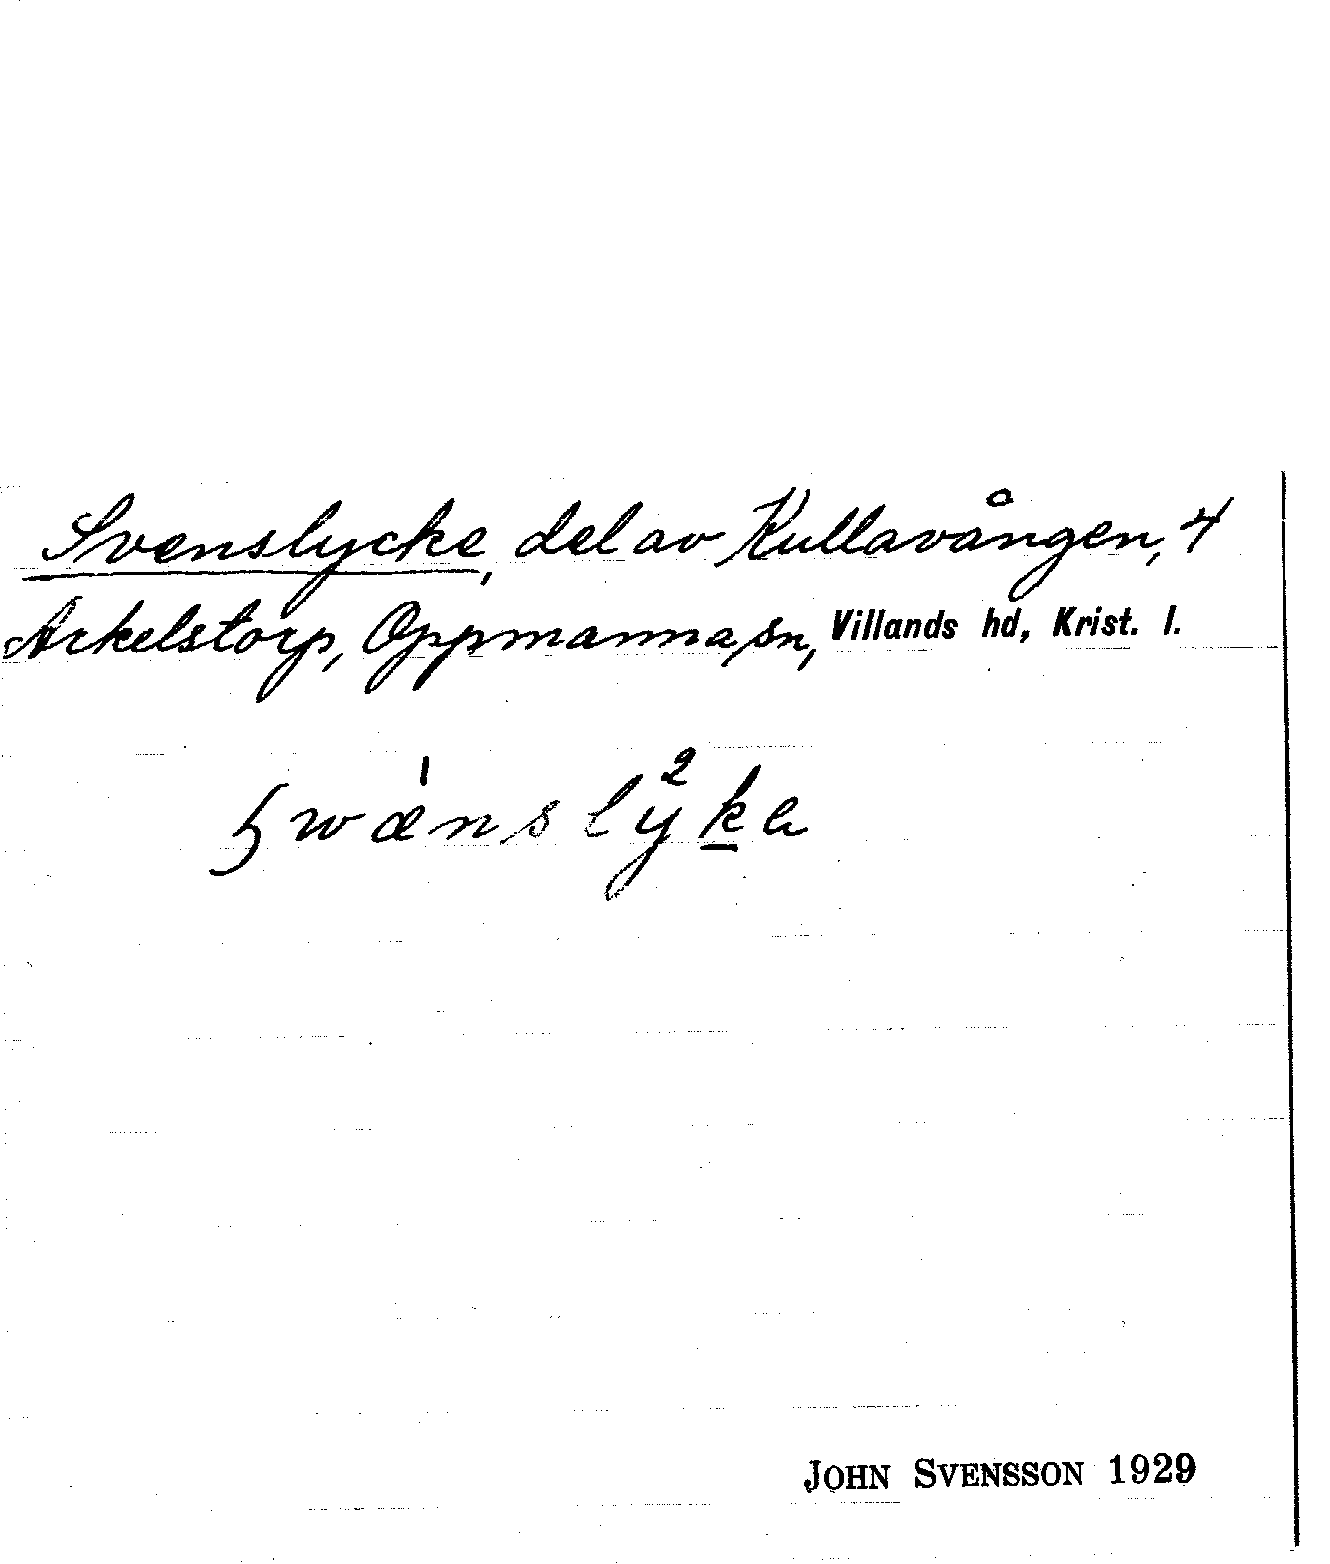 Svenslycke, del av Kullavången, 4
Arkelstorp, Oppmanna sn, Villands hd, Krist. l.
JOHN SVENSSON 1929